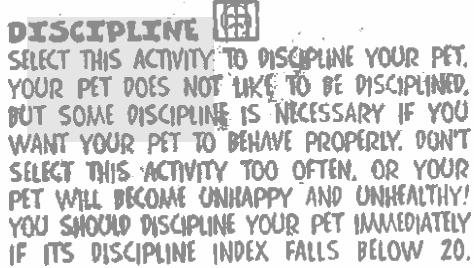 DISCIPLINE
SELECT THIS ACTIVITY TO DISCIPLINE YOUR PET.
YOUR PET DOES NOT LIKE TO BE DISCIPLINED,
BUT SOME DISCIPLINE IS NECESSARY IF YOU
WANT YOUR PET TO BEHAVE PROPERLY. DON'T
SELECT THIS ACTIVITY TOO OFTEN, OR YOUR
PET WILL BECOME UNHAPPY AND UNHEALTHY!
YOU SHOULD DISCIPLINE YOUR PET IMMEDIATELY
IF ITS DISCIPLINE INDEX FALLS BELOW 20.